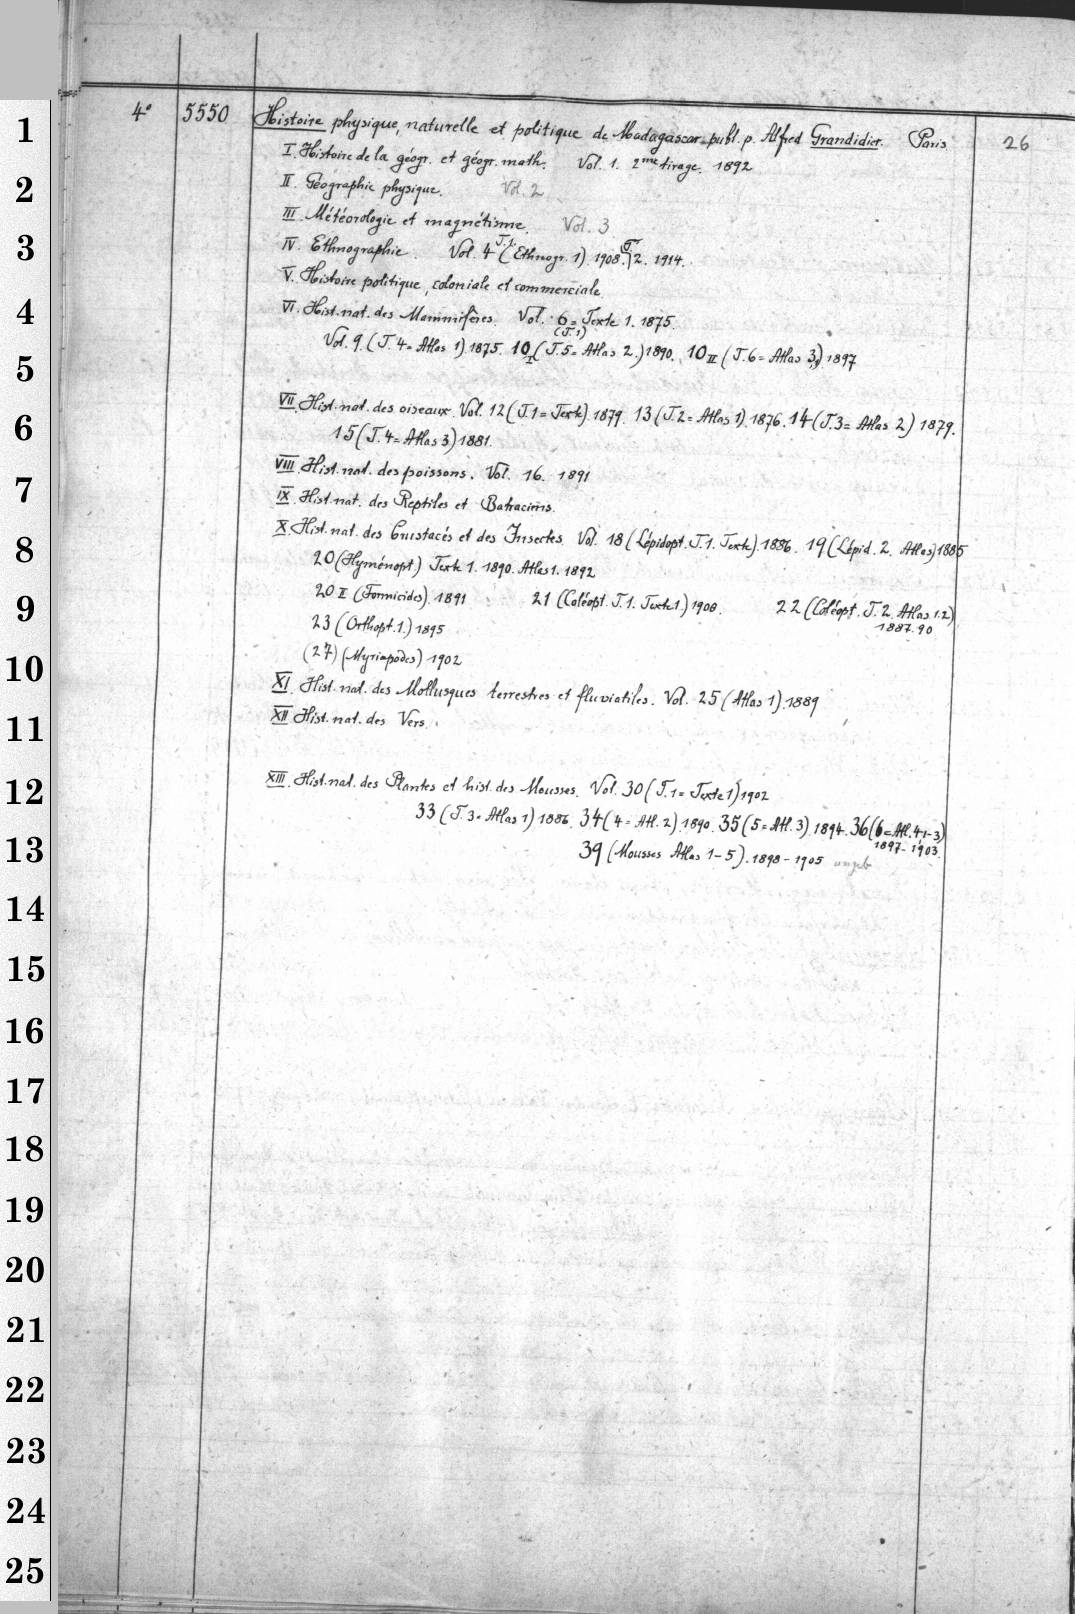 4° 5550 Histoire physique, naturelle et politique de Madagascar publ. p. Alfred Grandidier. Paris 26
I. Histoire de la géogr. et géogr. math. Vol. 1. 2me tirage. 1892
II. Géographie physique. Vol. 2
III. Météorologie et magnétisme. Vol. 3
IV. Ethnographie. Vol. 4 T.1. (Ethnogr. 1) 1908. T. 2. 1914.
V. Histoire politique, coloniale et commerciale.
VI. Hist. nat. des Mammifères. Vol. 6 = Texte 1. 1875.
(T.1)
Vol. 9. (T. 4 = Atlas 1) 1875. 10 I (T. 5 = Atlas 2.) 1890. 10 II (T. 6 = Atlas 3) 1897
VII. Hist. nat. des oiseaux. Vol. 12 (T.1 = Texte). 1879. 13 (T.2 = Atlas 1). 1876. 14 (T.3 = Atlas 2) 1879.
15 (T. 4 = Atlas 3) 1881.
VIII. Hist. nat. des poissons. Vol. 16. 1891
IX. Hist. nat. des Reptiles et Batraciens.
X. Hist. nat. des Crustacés et des Insectes. Vol. 18 (Lépidopt. T.1. Texte). 1886. 19 (Lépid. 2. Atlas) 1885
20 (Hyménopt) Texte 1. 1890. Atlas 1. 1892
20 II (Formicides). 1891 21 (Coléopt. T.1. Texte 1.) 1900. 22 (Coléopt. T. 2. Atlas 1.2)
1887. 90
23 (Orthopt. 1.) 1895
(27) (Myriapodes) 1902
XI. Hist. nat. des Mollusques terrestres et fluviatiles. Vol. 25 (Atlas 1). 1889
XII. Hist. nat. des Vers.
XIII. Hist. nat. des Plantes et hist. des Mousses. Vol. 30 (T.1 = Texte 1) 1902
33 (T. 3 = Atlas 1) 1886. 34 (4 = Atl. 2). 1890. 35 (5 = Atl. 3). 1894. 36 (6 = Atl. 4 1-3)
1897 - 1903.
39 (Mousses Atlas 1-5). 1898 - 1905 ungeb
1
2
3
4
5
6
7
8
9
10
11
12
13
14
15
16
17
18
19
20
21
22
23
24
25